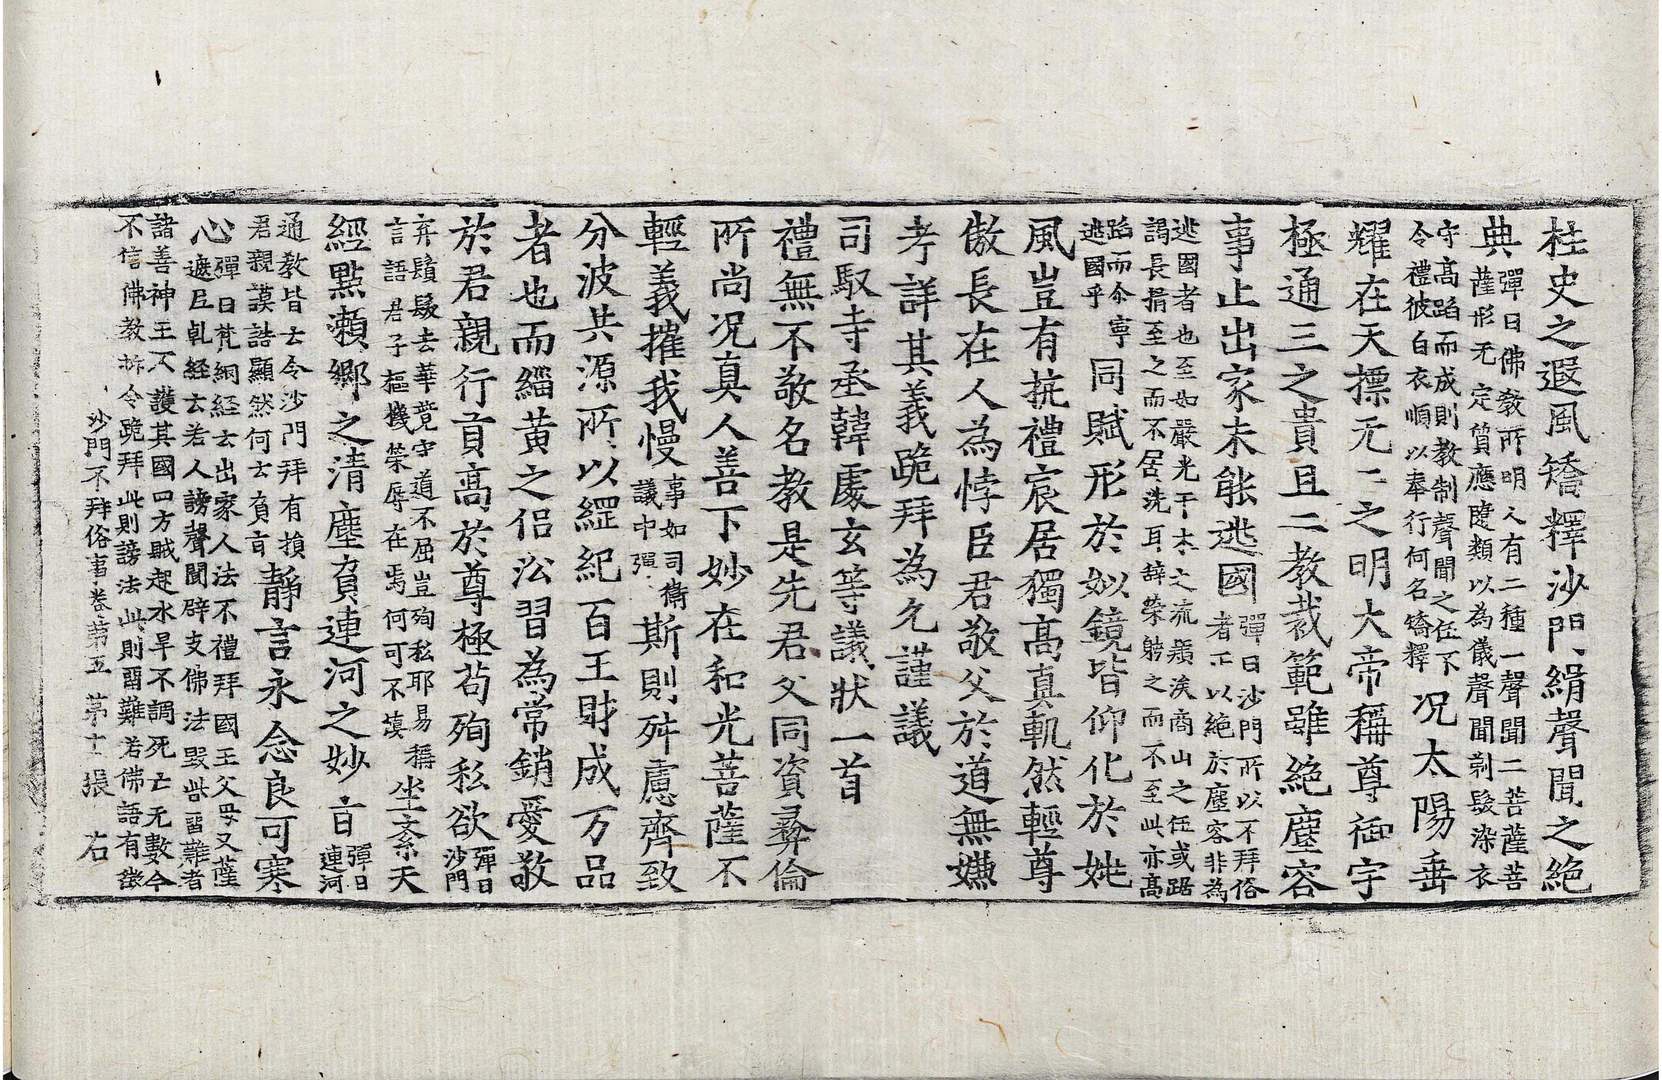 柱史之遐風矯釋沙門緝聲聞之絶
典彈曰佛教所明人有二種一聲聞二菩薩菩
薩形无定質應隨類以為儀聲聞剃髮染衣
守髙蹈而成則教制聲聞之伍下
令禮彼白衣順以奉行何名矯釋况太陽垂
耀在天摽元二之明大帝稱尊御宇
極通三之貴且二教裁範雖絶塵容
事止出家未能逃國彈曰沙門所以不拜俗
者正以絶於塵容非為
逃國者也至如嚴光干木之流潁涘商山之伍或踞
謁長揖至之而不居洗耳辞榮躬之而不至此亦髙
蹈而尒寧
逃國乎同賦形於姒鏡皆仰化於姚
風豈有抗禮宸居獨髙真軌然輕尊
傲長在人為悖臣君敬父於道無嫌
考詳其義跪拜為允謹議
司馭寺丞韓處玄等議狀一首
禮無不敬名教是先君父同資彞倫
所尚况真人善下妙在和光菩薩不
輕義摧我慢事如司衛
議中彈斯則舛慮齊致
分波共源所以經紀百王財成万品
者也而緇黄之侣訟習為常銷愛敬
於君親行貢髙於尊極苟殉私欲彈曰
沙門
弃鬚髮去華競守道不屈豈殉私耶易稱
言語君子樞機榮辱在焉何可不慎坐紊天
經點瀬鄉之清塵負連河之妙言彈曰
連河
通教皆云令沙門拜有損
君親謨誥顯然何云負言靜言永念良可寒
心彈曰梵網経云出家人法不禮拜國王父母又薩
遮尼乹経云若人謗聲聞辟支佛法毀呰留難者
諸善神王不護其國四方賊起水旱不調死亡无數今
不信佛教拆令跪拜此則謗法此則留難若佛語有徵
沙門不拜俗事卷第五　第十一張　右